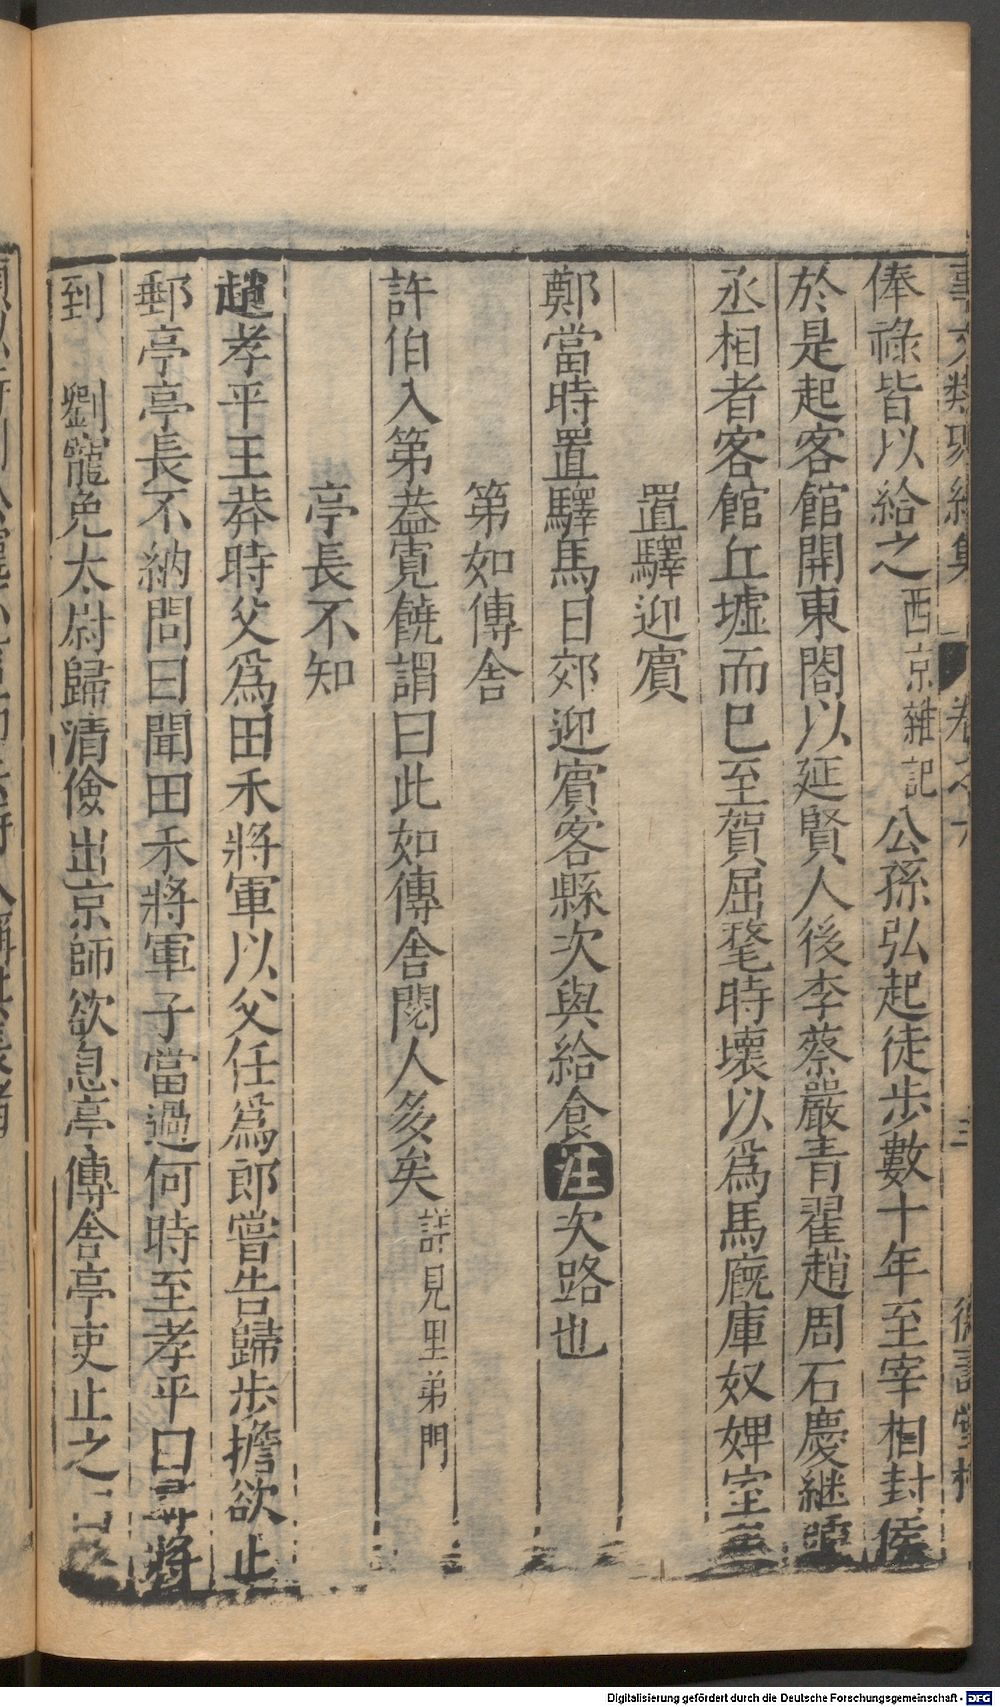 事文類聚續集 卷之六 三
俸祿皆以給之西京雜記公孫弘起徒步數十年至宰相封侯
於是起客館開東閤以延賢人後李蔡嚴青翟趙周石慶繼
丞相者客館丘墟而已至賀屈氂時壞以爲馬廐庫奴婢室
置驛迎賓
鄭當時置驛馬日郊迎賓客縣次與給食注次路也
第如傳舍
許伯入第葢寬饒謂曰此如傳舍閱人多矣詳見里弟門
亭長不知
趙孝平王莽時父爲田禾將軍以父任爲郎嘗告歸步擔欲止
郵亭亭長不納問曰聞田禾將軍子當過何時至孝平曰尋將
到 劉寵免太尉歸清儉出京師欲息亭傳舍亭吏止之
Digitalisierung gefördert durch die Deutsche Forschungsgemeinschaft - DFG